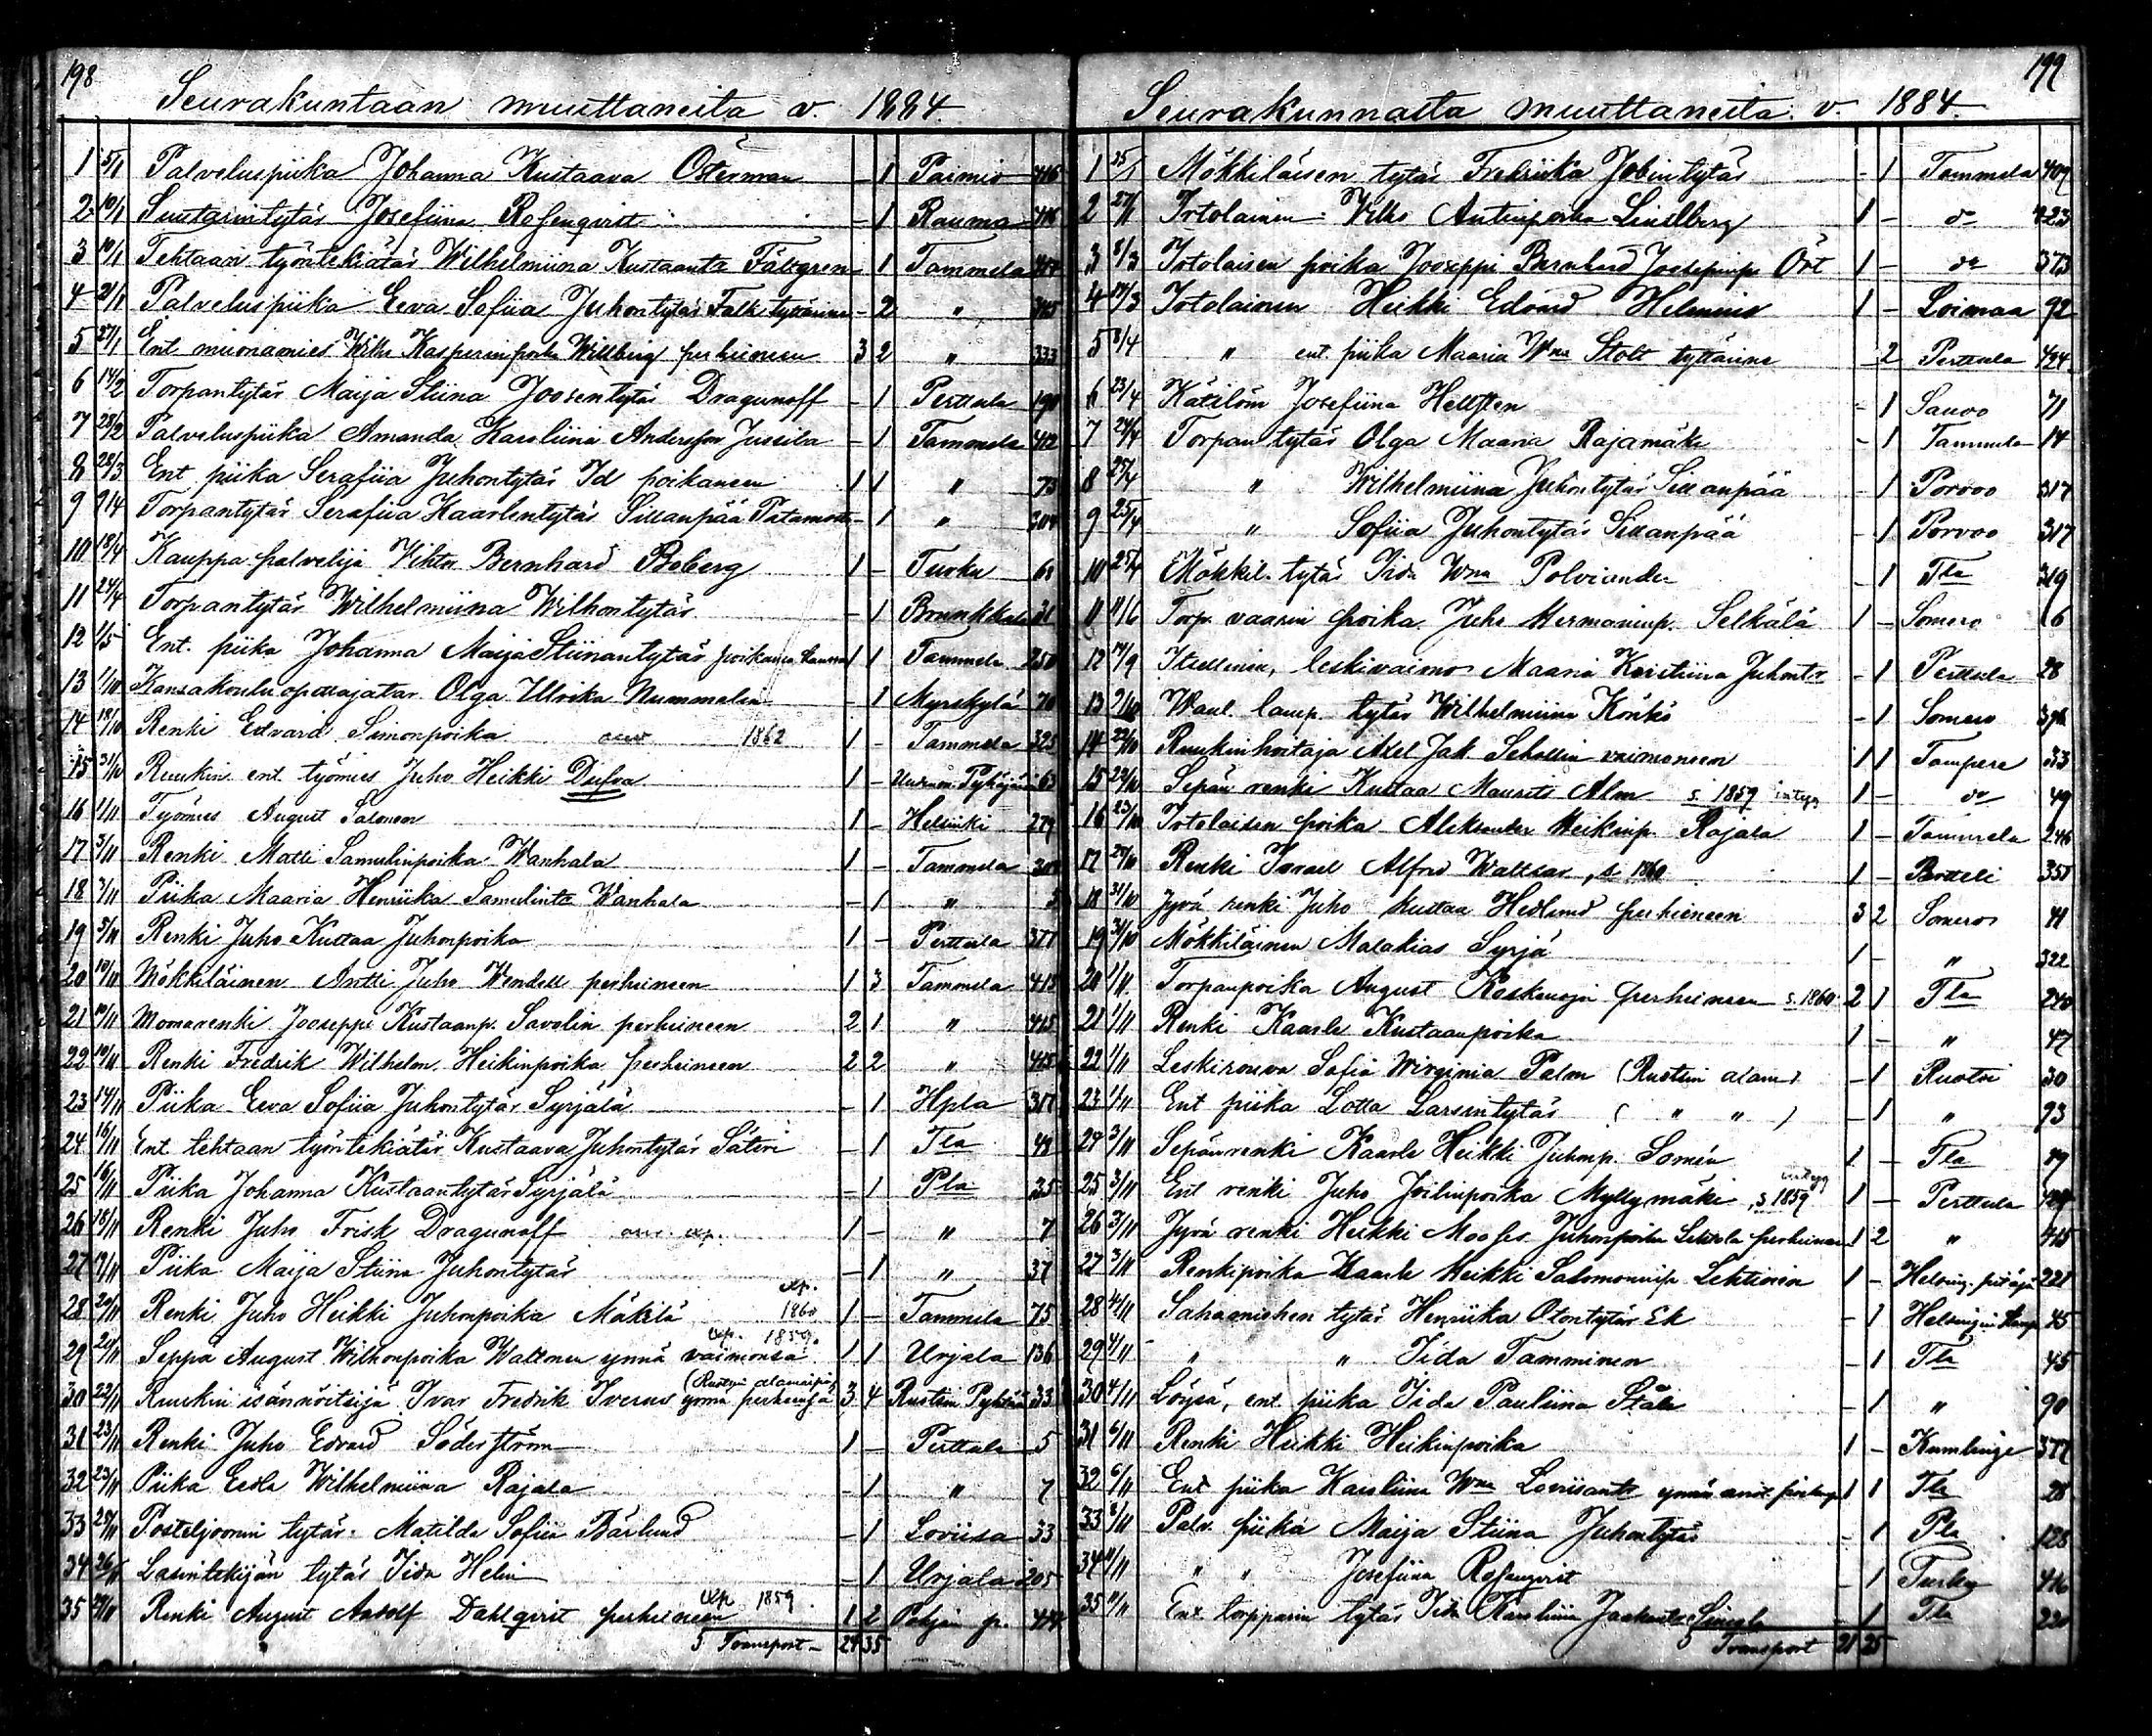 198
Seurakuntaan muuttaneita v. 1884.
1 5/1 Palveluspiika Johanna Kustaava Österman - 1 Paimio 416
2 10/1 Suutarintytär Josefiina Rosenqvist - 1 Rauma 416
3 10/1 Tehtaan työntekiätär Wilhelmiina Kustaantr Fältgren - 1 Tammela
4 21/1 Palveluspiika Eeva Sofiia Juhontytär Falk tyttärine - 2 "
5 27/1 Ent. muonamies Wilho Kasperinpoika Willberg perheineen 3 2 " 333
6 14/2 Torpantytär Maija Stiina Joosentytär Dragunoff - 1 Perttula 190
7 28/2 Palveluspiika Amanda Karoliina Andersson Jussila - 1 Tammela 412
8 28/3 Ent piika Serafiia Juhontytär Id poikaneen 1 1 " 73
9 9/4 Torpantytär Serafiia Kaarlentytär Sillanpää - 1 " 304
10 18/4 Kauppa palvelija Wihtor Bernhard Boberg 1 - Turku
11 24/4 Torpantytär Wilhelmiina Wilhontytär - 1
12 1/5 Ent. piika Johanna MaijaStiinantytär poikansa kanssa 1 1 Tammela 250
13 1/10 Kansakoulu opettajatar Olga Ullrika Nummelin - 1 Myrskylä 70
14 18/10 Renki Edvard Simonpoika 1862 1 - Tammela 325
15 31/10 Ruukin ent. työmies Juho Heikki Dufva 1 - 63
16 1/11 Työmies August Salonen 1 - Helsinki 279
17 3/11 Renki Matti Samulinpoika Wanhala 1 - Tammela
18 3/11 Piika Maaria Henriika Samulintr Wanhala - 1 " 5
19 5/11 Renki Juho Kustaa Juhonpoika 1 - Perttula 377
20 10/11 Mökkiläinen Antti Juho Wendell perheineen 1 3 Tammela 415
21 10/11 Moonarenki Jooseppi Kustaanp. Savolin perheineen 2 1 " 415
22 10/11 Renki Fredrik Wilhelm Heikinpoika perheineen 2 2 " 415
23 14/11 Piika Eeva Sofiia Juhontytär Syrjälä - 1 Hpla 317
24 16/11 Ent. tehtaan työntekiätär Kustaava Juhontytär Säteri - 1 Tla 49
25 16/11 Piika Johanna Kustaantytär Syrjälä - 1 Pla 35
26 18/11 Renki Juho Frisk Dragunoff 1 - " 7
27 19/11 Piika Maija Stiina Juhontytär - 1 " 37
28 20/11 Renki Juho Heikki Juhonpoika Mäkilä 1860 1 - Tammela 75
29 20/11 Seppä August Wilhonpoika Waltonen ynnä vaimonsa 1859. 1 1 Urjala 136
30 22/11 Ruukin isännöitsijä Ivar Fredrik Iverus ynnä perheensä (Rustin alamaisia) 3 4 Rustin Pyhtää 33
31 23/11 Renki Juho Edvard Söderström 1 - Perttula 5
32 23/11 Piika Eedla Wilhelmiina Rajala - 1 " 7
33 25/11 Posteljoonin tytär Matilda Sofiia Bärlund - 1 Loviisa 33
34 26/11 Lasintekijän tytär Iida Helin - 1 Urjala 205
35 29/11 Renki August Andolf Dahlqvist perheineen 1859. 1 2 Pohjan p.
5 Transport - 29 35
199
Seurakunnasta muuttaneita v. 1884.
1 25/1 Mökkiläisen tytär Fredriika Jobintytär - 1 Tammela 409
2 27/1 Itolainen Wilho Antinpoika Lindberg 1 - do 423
3 8/3 Itolaisen poika Jooseppi Bernhard Joosepinp. Ört 1 - do 373
4 17/3 Itolainen Heikki Edvard Helenius 1 - Loimaa 92
5 8/4 " ent. piika Maaria Wma Stolt tyttärine - 2 Perttula 424
6 23/4 Kätilön Josefiina Hellsten - 1 Sauvo 71
7 24/4 Torpan tytär Olga Maaria Rajamäki - 1 Tammela 14
8 25/4 " Wilhelmiina Juhontytär Sillanpää - 1 Porvoo 317
9 25/4 " Sofiia Juhontytär Sillanpää - 1 Porvoo 317
10 25/4 Mökkil. tytär Iida Wma Polviander - 1 Tla 319
11 11/6 Torp. vaarin poika Juho Hermaninp. Selkälä 1 - Somero 16
12 14/9 Itsellinen, leskivaimo Maaria Kristiina Juhontr - 1 Perttula 28
13 9/10 Waul. lamp. tytär Wilhelmiina Könkö - 1 Somero
14 22/10 Ruukinhoitaja Axel Jak Schollin vaimoneen 1 1 Tampere 33
15 22/10 Sepän renki Kustaa Maurits Alm s. 1859 1 - do 49
16 23/10 Itolaisen poika Aleksander Heikinp. Rajala 1 - Tammela 246
17 27/10 Renki Israel Alfred Waltsar, s. 1860 1 - Pertteli 351
18 31/10 Jyvä renki Juho Kustaa Hedlund perheineen 3 2 Someros 41
19 31/10 Mökkiläinen Malakias Syrjä 1 - " 322
20 1/11 Torpanpoika August Koskenoja perheineen s. 1860 2 1 Tla 240
21 1/11 Renki Kaarle Kustaanpoika 1 - " 47
22 1/11 Leskirouva Sofia Wirginia Palm (Rustin alam.) - 1 Rustin 30
23 1/11 Ent piika Lotta Larsentytär ( " " ) - 1 " 93
24 3/11 Sepänrenki Kaarle Heikki Juhonp. Somén 1 - Tla 89
25 3/11 Ent renki Juho Joilinpoika Myllymäki, s 1859 1 - Perttula
26 3/11 Jyvä renki Heikki Mooses Juhonpoika Lehtola perheineen 1 2 " 415
27 3/11 Renkipoika Kaarle Heikki Salomoninp. Lehtinen 1 - Helsing. pitäjä 221
28 4/11 Sahamiehen tytär Henriika Otontytär Ek - 1 Helsingin kaup 45
29 4/11 " " Iida Tamminen - 1 Tla 45
30 4/11 Löysä, ent. piika Iida Pauliina Ståle - 1 " 90
31 6/11 Renki Heikki Heikinpoika 1 - Kumlinge 377
32 6/11 Ent piika Karoliina Wma Loviisantr ynnä 1 1 Tla 28
33 8/11 Palv. piika Maija Stiina Juhontytär - 1 Pla 128
34 11/11 " " Josefiina Rosenqvist - 1 Turku 416
35 11/11 Ent. torpparin tytär Iida Karoliina Jaakontr - 1 Tla 220
Transport 21 25